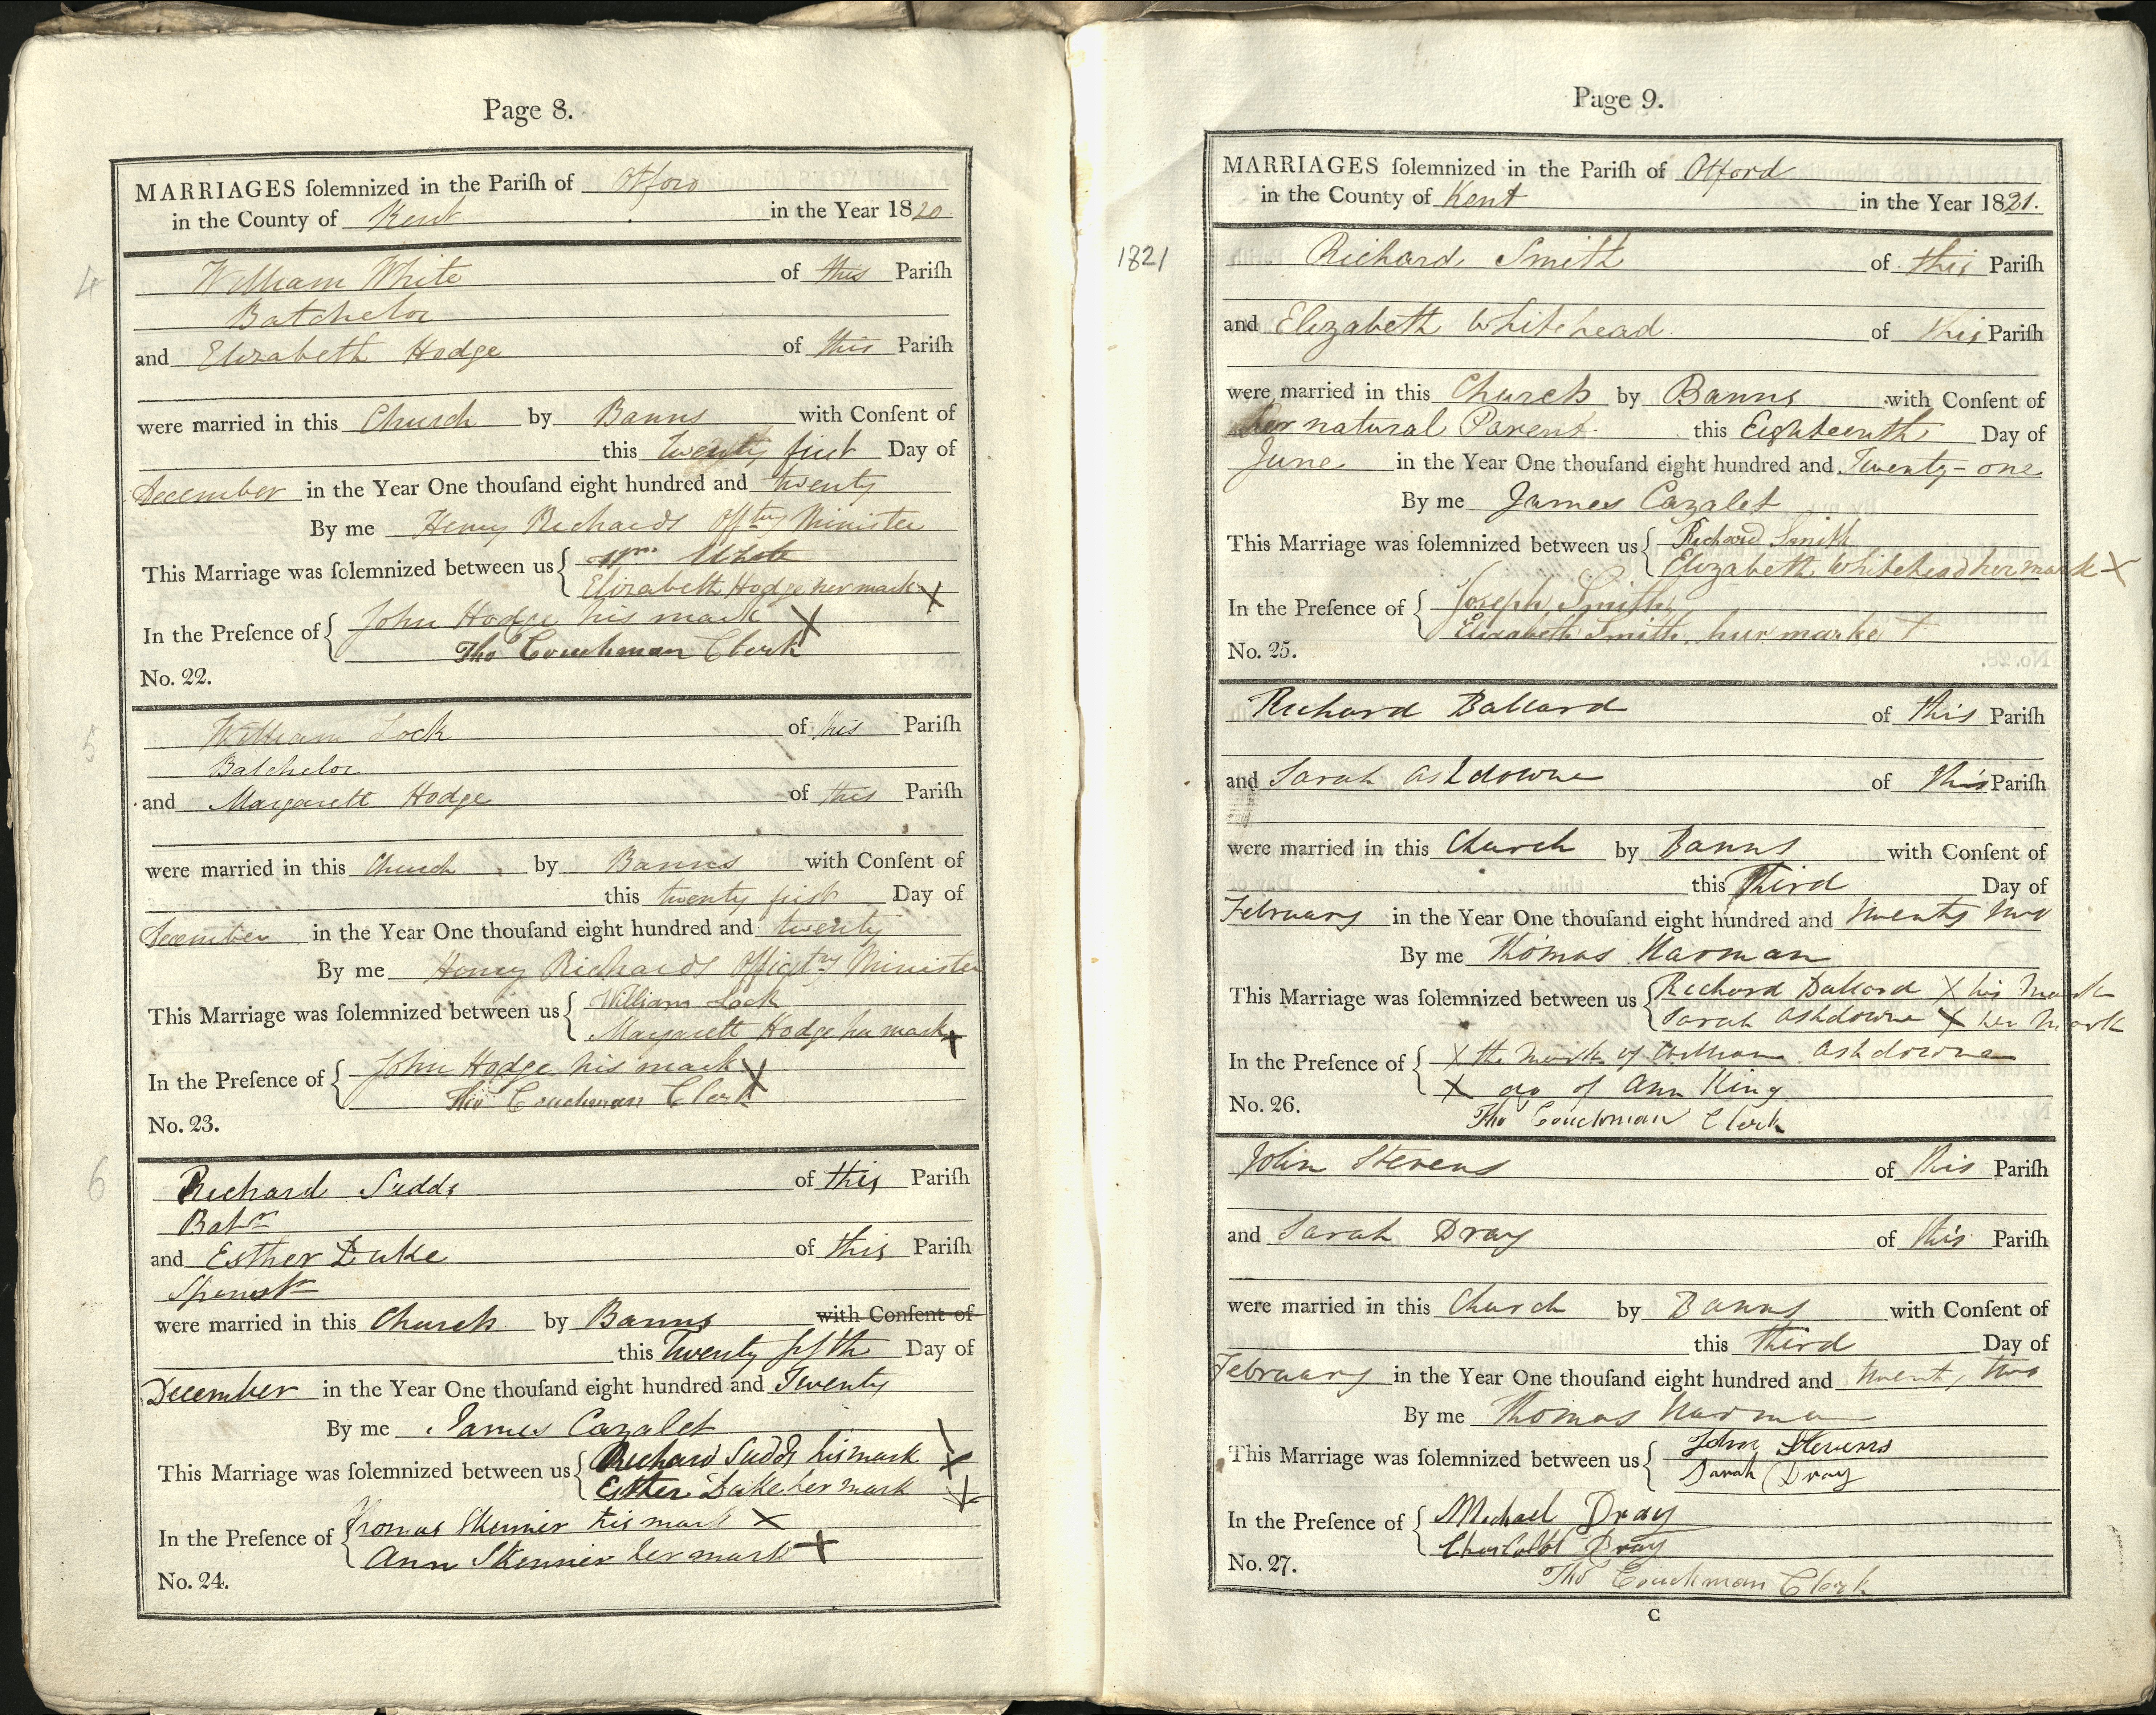 Page 8.
MARRIAGES ſolemnized in the Pariſh of Otford
in the County of Kent in the Year 1820
4
William White of this Pariſh
Batchelor
and Elizabeth Hodge of this Pariſh
were married in this Church by Banns with Conſent of
this twenty first Day of
December in the Year One thouſand eight hundred and twenty
By me Henry Richards Offtng Minister
This Marriage was ſolemnized between us Wm White
Elizabeth Hodge her mark X
In the Preſence of John Hodge his mark X
Tho Couchman Clerk
No. 22.
5
William Lock of this Pariſh
Batchelor
and Margarett Hodge of this Pariſh
were married in this Church by Banns with Conſent of
this twenty first Day of
December in the Year One thouſand eight hundred and twenty
By me Henry Richards Minister
This Marriage was ſolemnized between us William Lock
Margarett Hodge her mark X
In the Preſence of John Hodge his mark X
Tho Couchman Clerk
No. 23.
6
Richard Sudds of this Pariſh
Batr
and Esther Duke of this Pariſh
Spinstr
were married in this Church by Banns with Conſent of
this Twenty fifth Day of
December in the Year One thouſand eight hundred and Twenty
By me James Cazalet
This Marriage was ſolemnized between us Richard Sudds his mark X
Esther Duke her mark X
In the Preſence of Thomas Skinner his mark X
Ann Skinner her mark X
No. 24.
Page 9.
MARRIAGES ſolemnized in the Pariſh of Otford
in the County of Kent in the Year 1821.
1821
Richard Smith of this Pariſh
and Elizabeth Whitehead of this Pariſh
were married in this Church by Banns with Conſent of
her natural Parent this Eighteenth Day of
June in the Year One thouſand eight hundred and Twenty-one
By me James Cazalet
This Marriage was ſolemnized between us Richard Smith
Elizabeth Whitehead her mark X
In the Preſence of Joseph Smith
Elizabeth Smith hur marke X
No. 25.
Richard Ballard of this Pariſh
and Sarah Ashdowne of this Pariſh
were married in this Church by Banns with Conſent of
this Third Day of
February in the Year One thouſand eight hundred and twenty two
By me Thomas Harman
This Marriage was ſolemnized between us Richard Ballard X his Mark
Sarah Ashdowne X her Mark
In the Preſence of X the Mark of William Ashdowne
X do of Ann King
No. 26.
Tho Couchman Clerk
John Stevens of this Pariſh
and Sarah Dray of this Pariſh
were married in this Church by Banns with Conſent of
this third Day of
February in the Year One thouſand eight hundred and twenty two
By me Thomas Harman
This Marriage was ſolemnized between us John Stevens
Sarah Dray
In the Preſence of Michael Dray
Dray
No. 27.
Tho Couchman Clerk
C